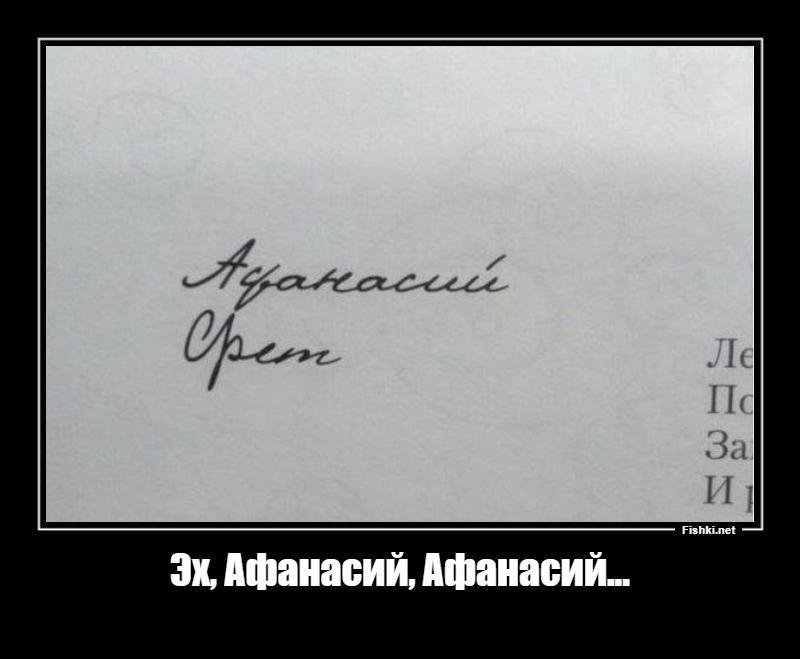 Афанасий
Фет
Ле
По
За
И р
Fishki.net
Эх, Афанасий, Афанасий...